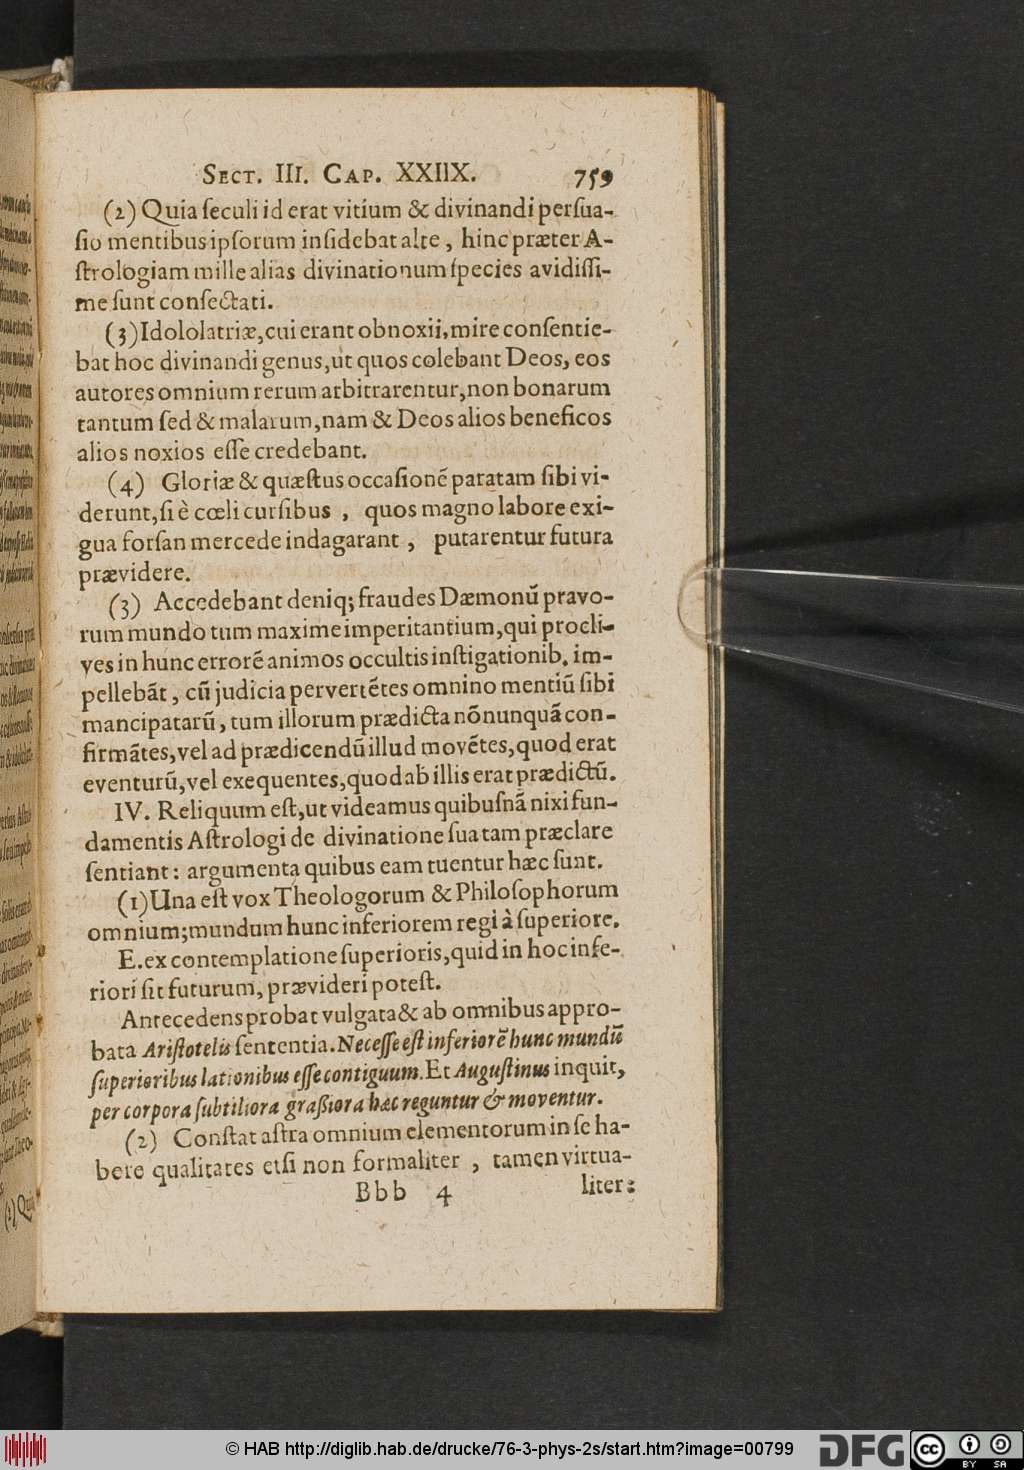 Sect. III. Cap. XXIIX. 759
(2) Quia ſeculi id erat vitium & divinandi perſua-
ſio mentibus ipſorum inſidebat alte, hinc præter A-
ſtrologiam mille alias divinationum ſpecies avidiſſi-
me ſunt conſectati.
(3) Idololatriæ, cui erant obnoxii, mire conſentie-
bat hoc divinandi genus, ut quos colebant Deos, eos
autores omnium rerum arbitrarentur, non bonarum
tantum ſed & malarum, nam & Deos alios beneficos
alios noxios eſſe credebant.
(4) Gloriæ & quæſtus occaſionẽ paratam ſibi vi-
derunt, ſi è cœli curſibus, quos magno labore exi-
gua forſan mercede indagarant, putarentur futura
prævidere.
(3) Accedebant deniq; fraudes Dæmonũ pravo-
rum mundo tum maxime imperitantium, qui procli-
ves in hunc errorẽ animos occultis inſtigationib. im-
pellebãt, cũ judicia pervertẽtes omnino mentiũ ſibi
mancipatarũ, tum illorum prædicta nõnunquã con-
firmãtes, vel ad prædicendũ illud movẽtes, quod erat
eventurũ, vel exequentes, quod ab illis erat prædictũ.
IV. Reliquum eſt, ut videamus quibuſnã nixi fun-
damentis Aſtrologi de divinatione ſua tam præclare
ſentiant: argumenta quibus eam tuentur hæc ſunt.
(1) Una eſt vox Theologorum & Philoſophorum
omnium; mundum hunc inferiorem regi à ſuperiore.
E. ex contemplatione ſuperioris, quid in hoc infe-
riori ſit futurum, prævideri poteſt.
Antecedens probat vulgata & ab omnibus appro-
bata Ariſtotelis ſententia. Neceſſe eſt inferiorẽ hunc mundũ
ſuperioribus lationibus eſſe contiguum. Et Auguſtinus inquit,
per corpora ſubtiliora graßiora hæc reguntur & moventur.
(2) Conſtat aſtra omnium elementorum in ſe ha-
bere qualitates etſi non formaliter, tamen virtua-
Bbb 4 liter:
© HAB http://diglib.hab.de/drucke/76-3-phys-2s/start.htm?image=00799 DFG cc BY SA